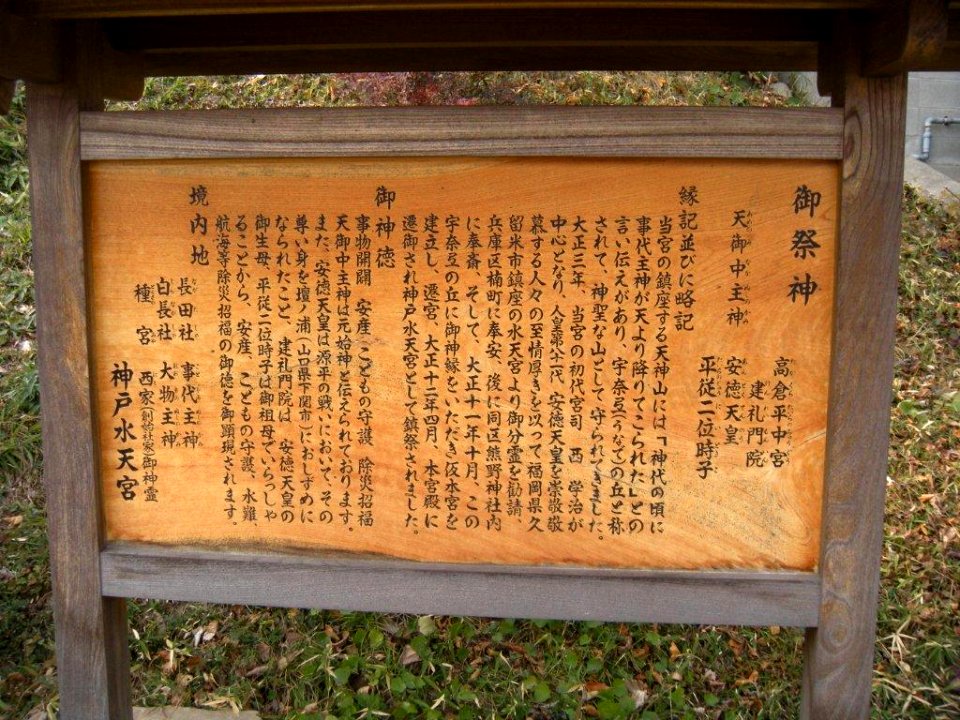 御祭神
天御中主神
高倉平中宮
建礼門院
安徳天皇
平従二位時子
縁記並びに略記
当宮の鎮座する天神山には「神代の頃に
事代主神が天より降りてこられた」との
言い伝えがあり、宇奈互(うなて)の丘と称
されて、神聖な山として守られてきました。
大正三年、当宮の初代宮司 西 学治が
中心となり、人皇第八十一代 安徳天皇を崇敬敬
慕する人々の至情厚きを以って福岡県久
留米市鎮座の水天宮より御分霊を勧請、
兵庫区楠町に奉安、後に同区熊野神社内
に奉斎、そして、大正十一年十月、この
宇奈互の丘に御神縁をいただき仮本宮を
建立し、遷宮、大正十二年四月、本宮殿に
遷御され神戸水天宮として鎮祭されました。
御神徳
事物開闢 安産 こどもの守護 除災招福
天御中主神は元始神と伝えられております。
また、安徳天皇は源平の戦いにおいて、その
尊い身を壇ノ浦(山口県下関市)におしずめに
なられたこと、建礼門院は 安徳天皇の
御生母、平従二位時子は御祖母でいらっしゃ
ることから、安産、こどもの守護、水難、
航海等除災招福の御徳を御顕現されます。
境内地
長田社 事代主神
白長社 大物主神
種宮 西家(創祀社家)御神霊
神戸水天宮